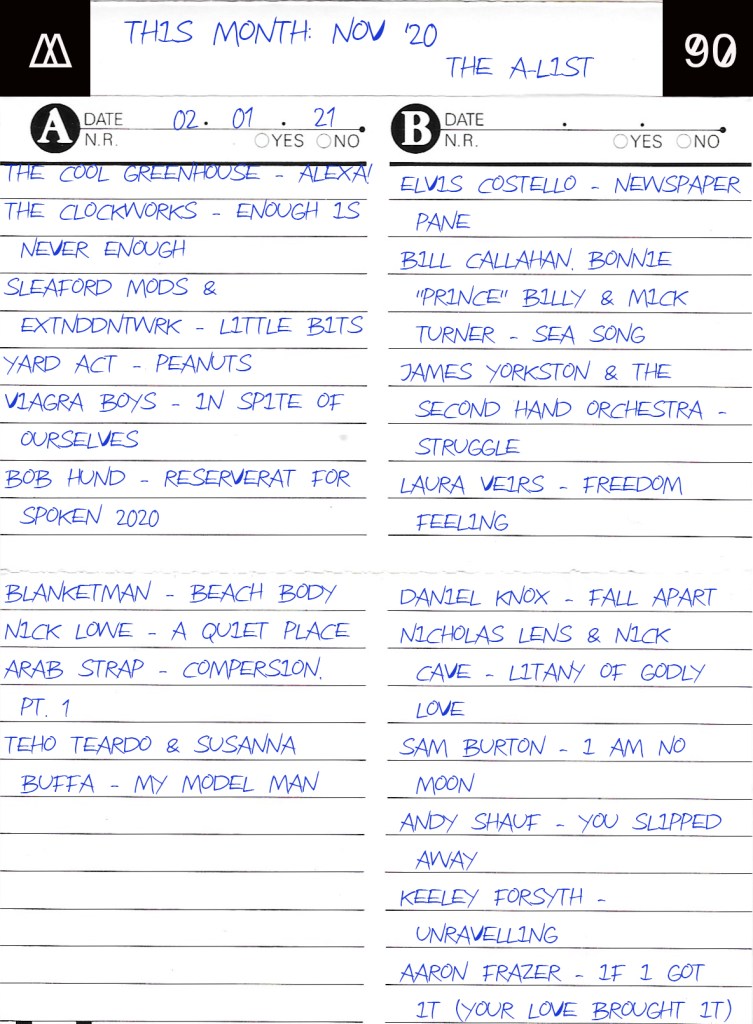 THIS MONTH: NOV '20
THE A-LIST
90
A
DATE 02. 01. 21
N.R. YES NO
THE COOL GREENHOUSE - ALEXA!
THE CLOCKWORKS - ENOUGH IS
NEVER ENOUGH
SLEAFORD MODS &
EXTNDDNTWRK - LITTLE BITS
YARD ACT - PEANUTS
VIAGRA BOYS - IN SPITE OF
OURSELVES
BOB HUND - RESERVERAT FOR
SPOKEN 2020
BLANKETMAN - BEACH BODY
NICK LOWE - A QUIET PLACE
ARAB STRAP - COMPERSION.
PT. 1
TEHO TEARDO & SUSANNA
BUFFA - MY MODEL MAN
B
DATE . .
N.R. YES NO
ELVIS COSTELLO - NEWSPAPER
PANE
BILL CALLAHAN. BONNIE
"PRINCE" BILLY & MICK
TURNER - SEA SONG
JAMES YORKSTON & THE
SECOND HAND ORCHESTRA -
STRUGGLE
LAURA VEIRS - FREEDOM
FEELING
DANIEL KNOX - FALL APART
NICHOLAS LENS & NICK
CAVE - LITANY OF GODLY
LOVE
SAM BURTON - I AM NO
MOON
ANDY SHAUF - YOU SLIPPED
AWAY
KEELEY FORSYTH -
UNRAVELLING
AARON FRAZER - IF I GOT
IT (YOUR LOVE BROUGHT IT)